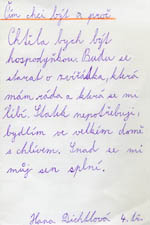 Čím chci být a proč
Chtěla bych být
hospodyňkou. Budu se
starat o zvířátka, která
mám ráda a která se mi
líbí. Statek nepotřebuji,
bydlím ve velkém domě
s chlívem. Snad se mi
můj sen splní.
Hana Dichtlová 4. tř.